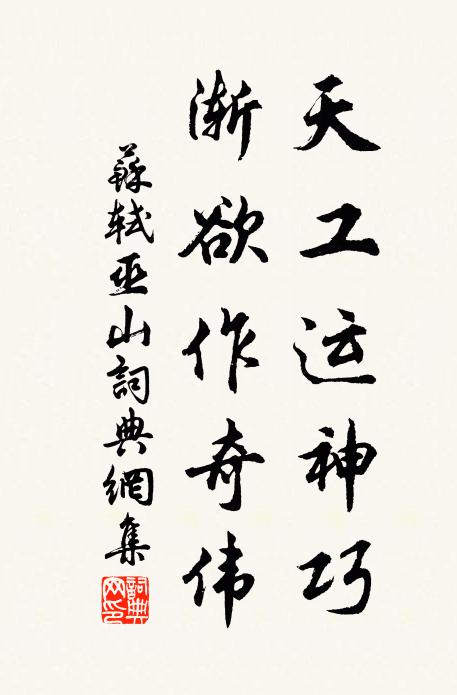 天工运神巧
渐欲作奇伟
蘇軾巫山詞典網集
詞典网印